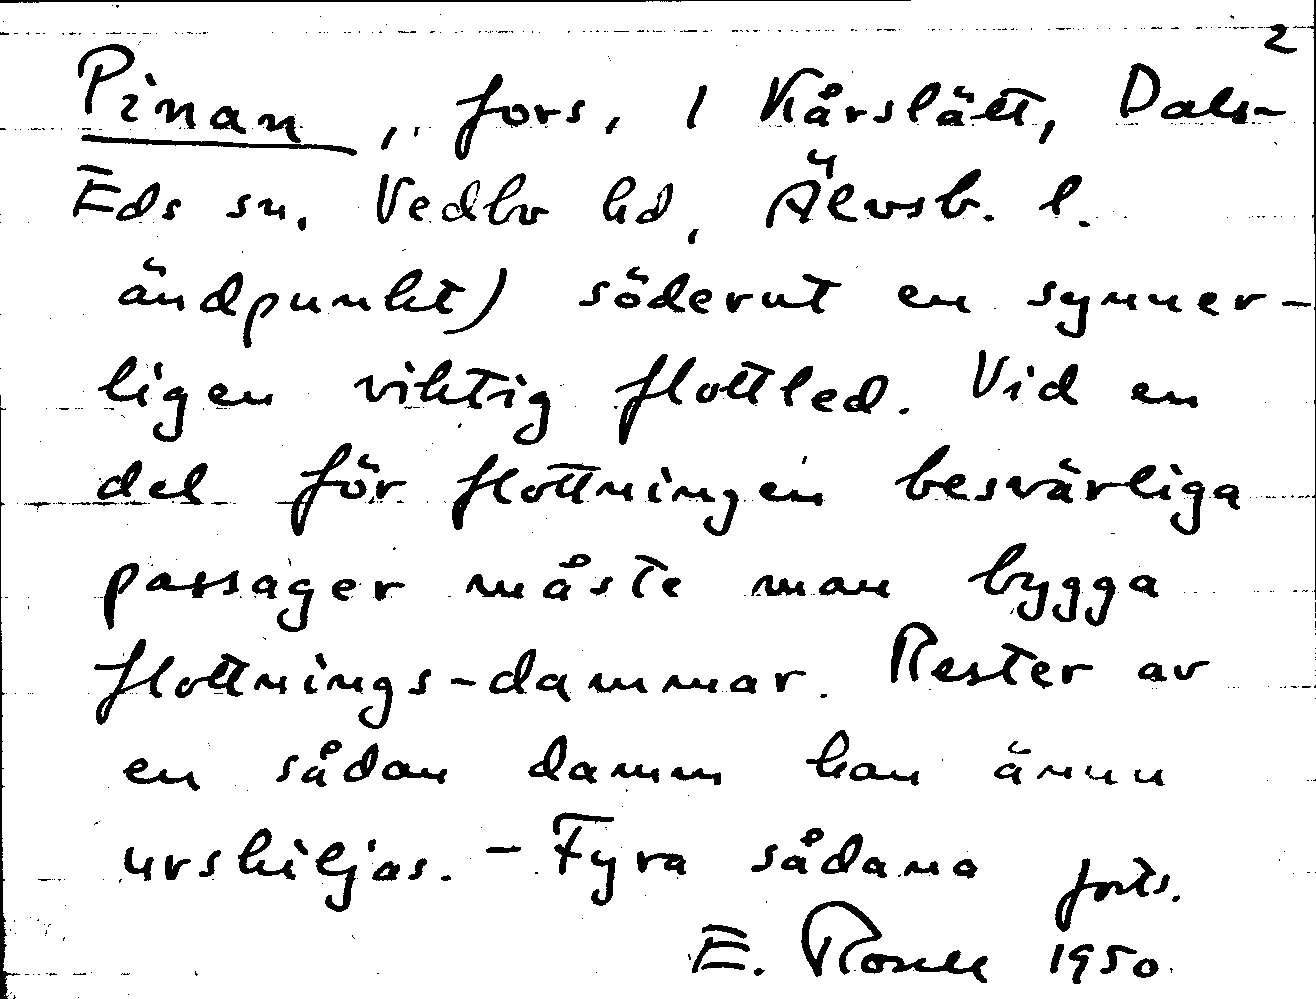 2
Pinan, fors, 1 Kårslätt, Dals-
Eds sn, Vedbo hd, Älvsb. l.
ändpunkt) söderut en synner-
ligen viktig flottled. Vid en
del för flottningen besvärliga
passager måste man bygga
flottnings-dammar. Rester av
en sådan damm kan ännu
urskiljas. - Fyra sådana forts.
E. Rosell 1950